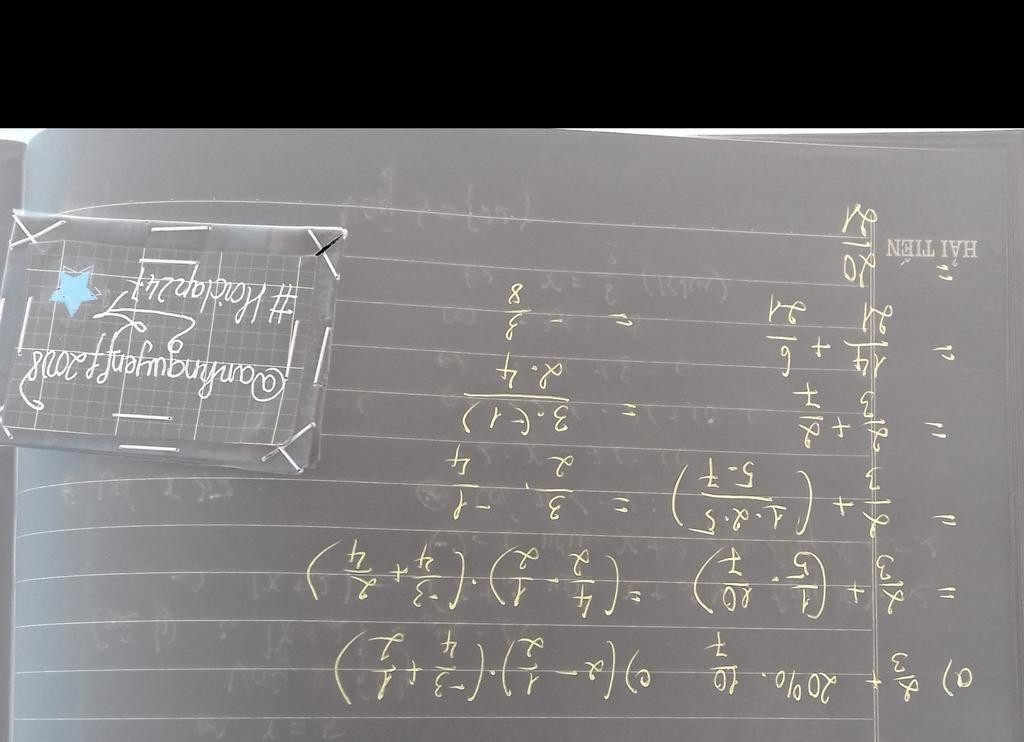 a) 2/3 + 20% . 10/7
= 2/3 + (1/5 . 10/7)
= 2/3 + (1.2.5/5.7)
= 2/3 + 2/7
= 14/21 + 6/21
= 20/21
c) (2 - 1/2) . (-3/4 + 1/2)
= (4/2 - 1/2) . (-3/4 + 2/4)
= 3/2 . -1/4
= 3.(-1)/2.4
= -3/8
@anhnguyenff2008
#Hoidap247
HẢI TIẾN